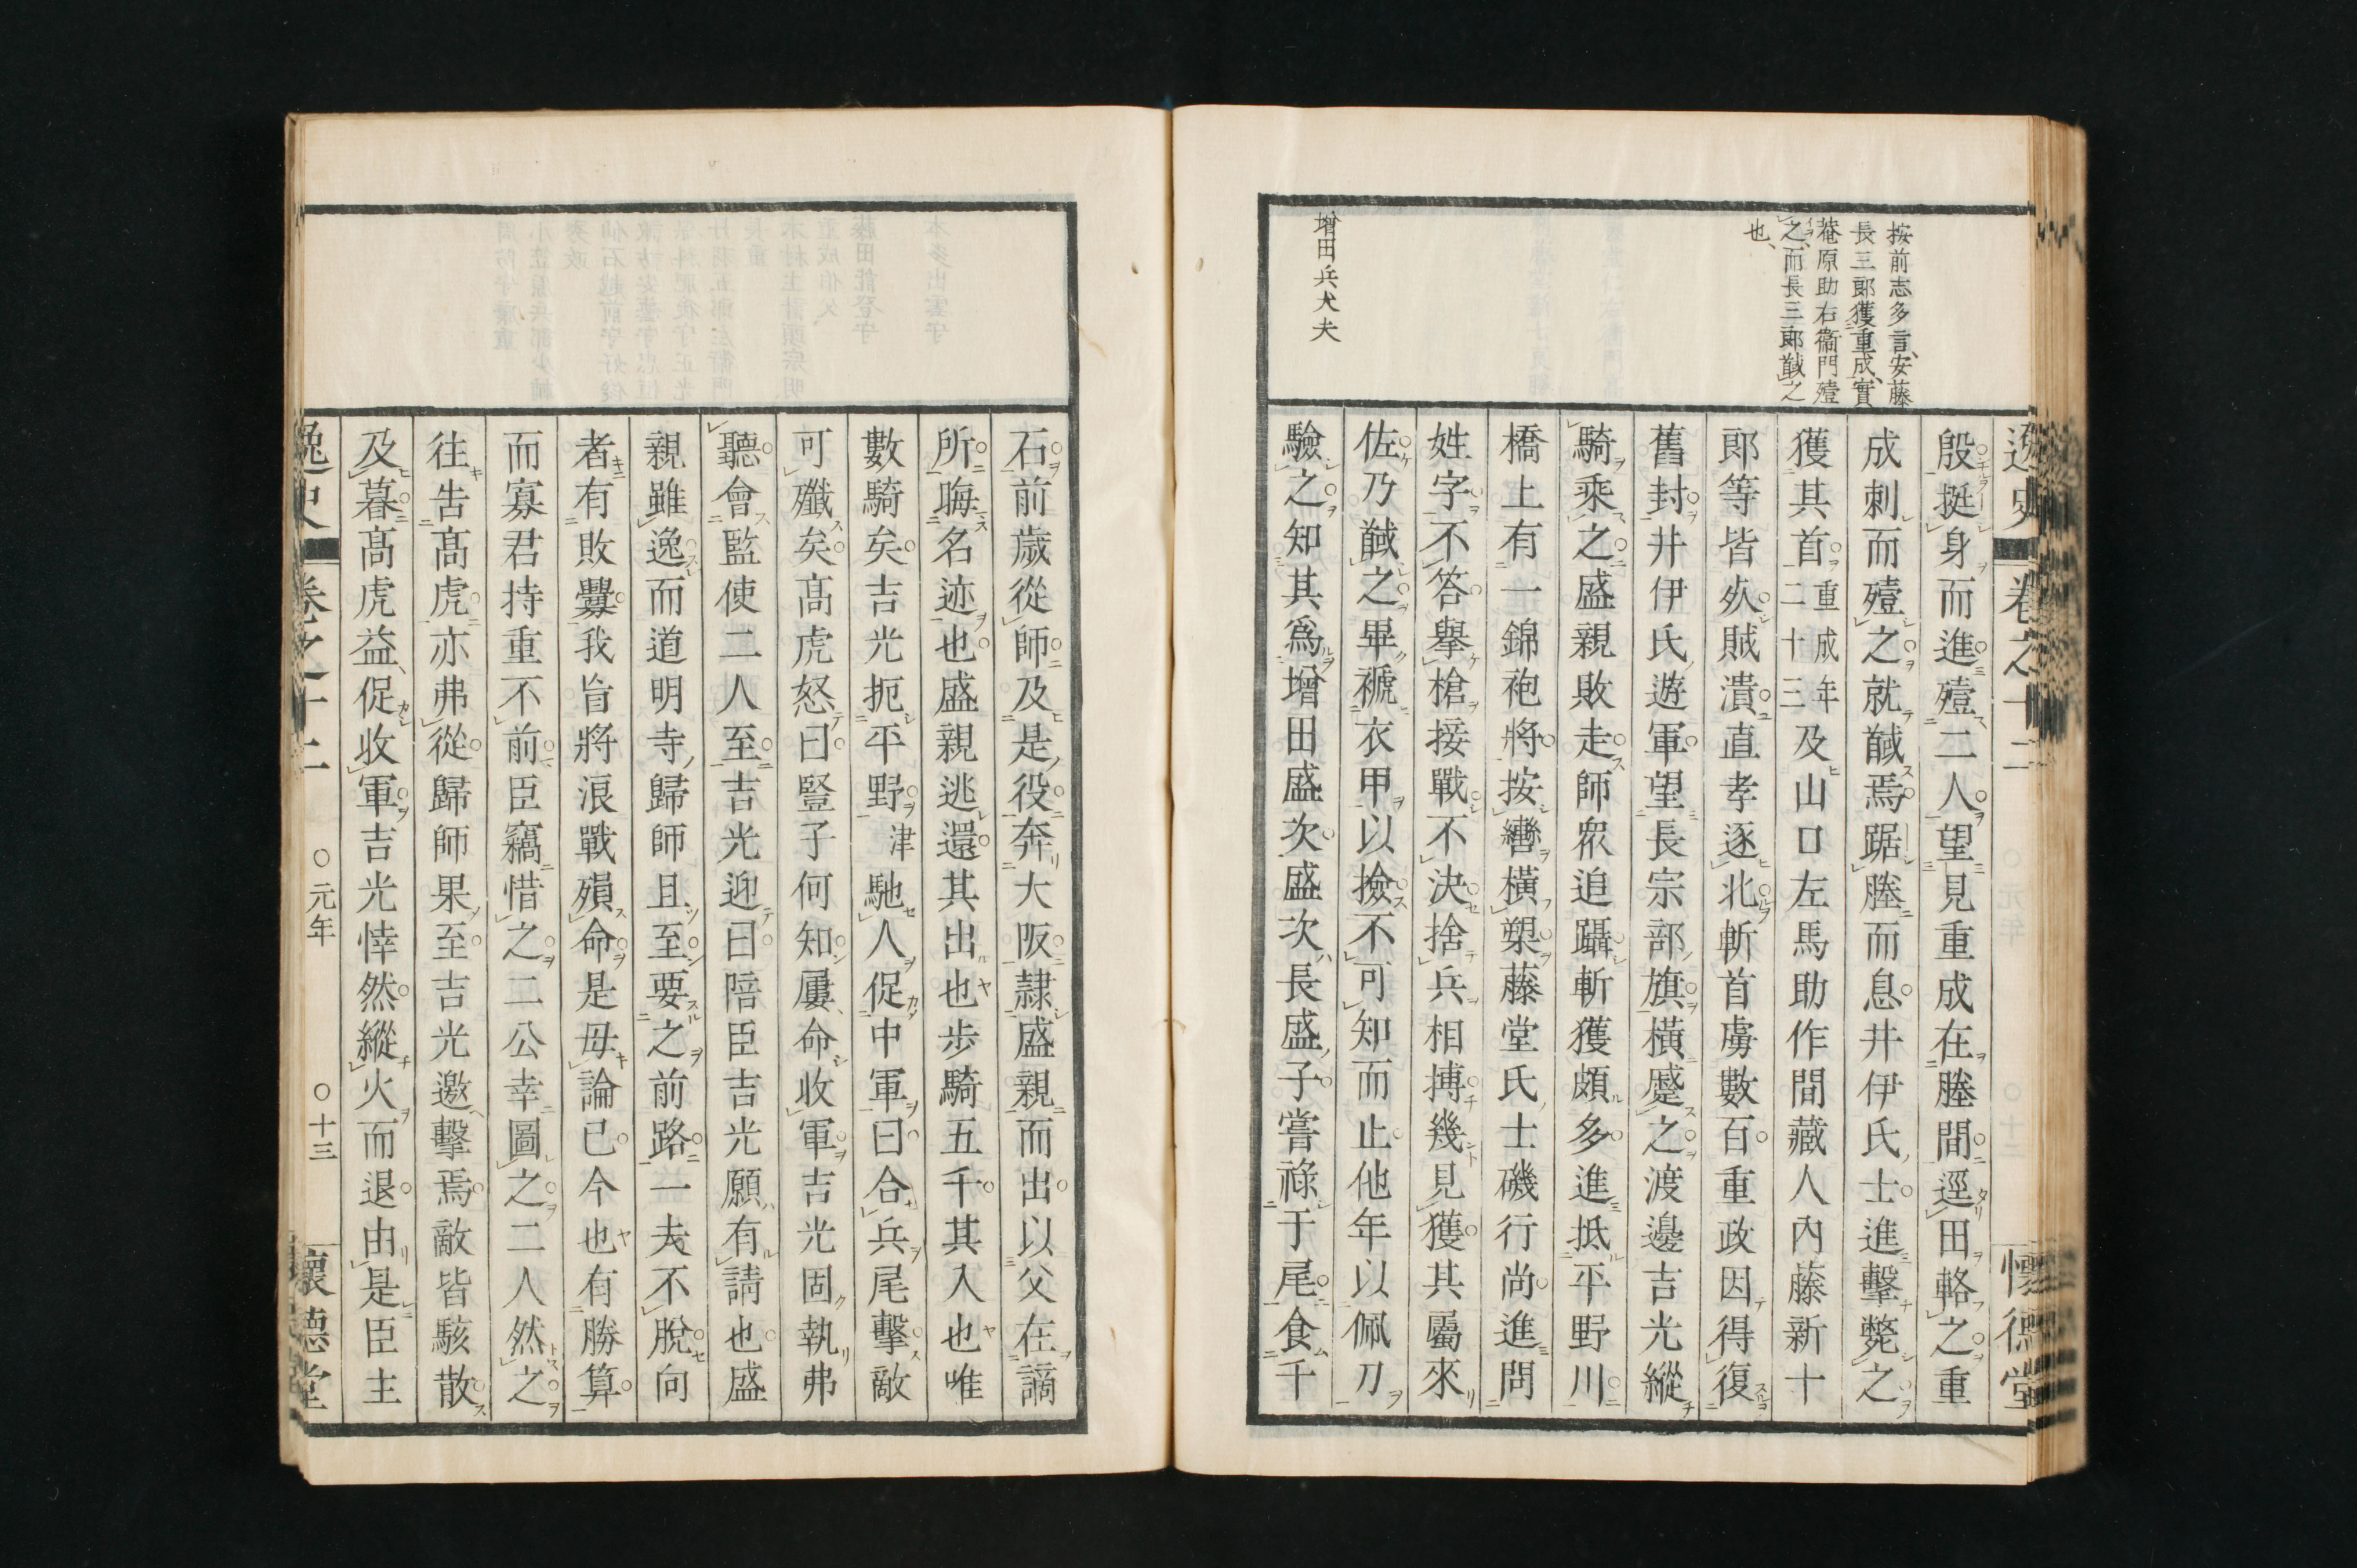 逸史
卷之十二
懷德堂
按前志多言、安藤
長三郎獲重成、實
菴原助右衞門殪
之、而長三郎馘之
也、
增田兵大夫
殷挺身而進殪二人望見重成在塍間逕田輅之重
成刺而殪之就馘焉踞塍而息井伊氏士進擊斃之
獲其首重成年二十三及山口左馬助作間藏人內藤新十
郎等皆歿賊潰直孝逐北斬首虜數百重政因得復
舊封井伊氏遊軍望長宗部旗橫蹙之渡邊吉光縱
騎乘之盛親敗走師眾追躡斬獲頗多進抵平野川
橋上有一錦袍將按轡橫槊藤堂氏士磯行尚進問
姓字不答擧槍接戰不決捨兵相搏幾見獲其屬來
佐乃馘之畢褫衣甲以撿不可知而止他年以佩刀
驗之知其爲增田盛次盛次長盛子嘗祿于尾食千
石前歲從師及是役奔大阪隸盛親而出以父在謫
所晦名迹也盛親逃還其出也步騎五千其入也唯
數騎矣吉光扼平野津馳人促中軍曰合兵尾擊敵
可殲矣高虎怒曰豎子何知屢命收軍吉光固執弗
聽會監使二人至吉光迎曰陪臣吉光願有請也盛
親雖逸而道明寺歸師且至要之前路一夫不脫向
者有敗釁我旨將浪戰殞命是毋論已今也有勝算
而寡君持重不前臣竊惜之二公幸圖之二人然之
往告高虎亦弗從歸師果至吉光邀擊焉敵皆駭散
及暮高虎益促收軍吉光悻然縱火而退由是臣主
逸史
卷之十二
○元年
○十三
懷德堂